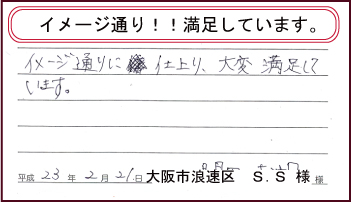 イメージ通り！！満足しています。
イメージ通りに 仕上り、大変 満足して
います。
平成 23 年 2 月 21 日 大阪市浪速区 S.S 様 様